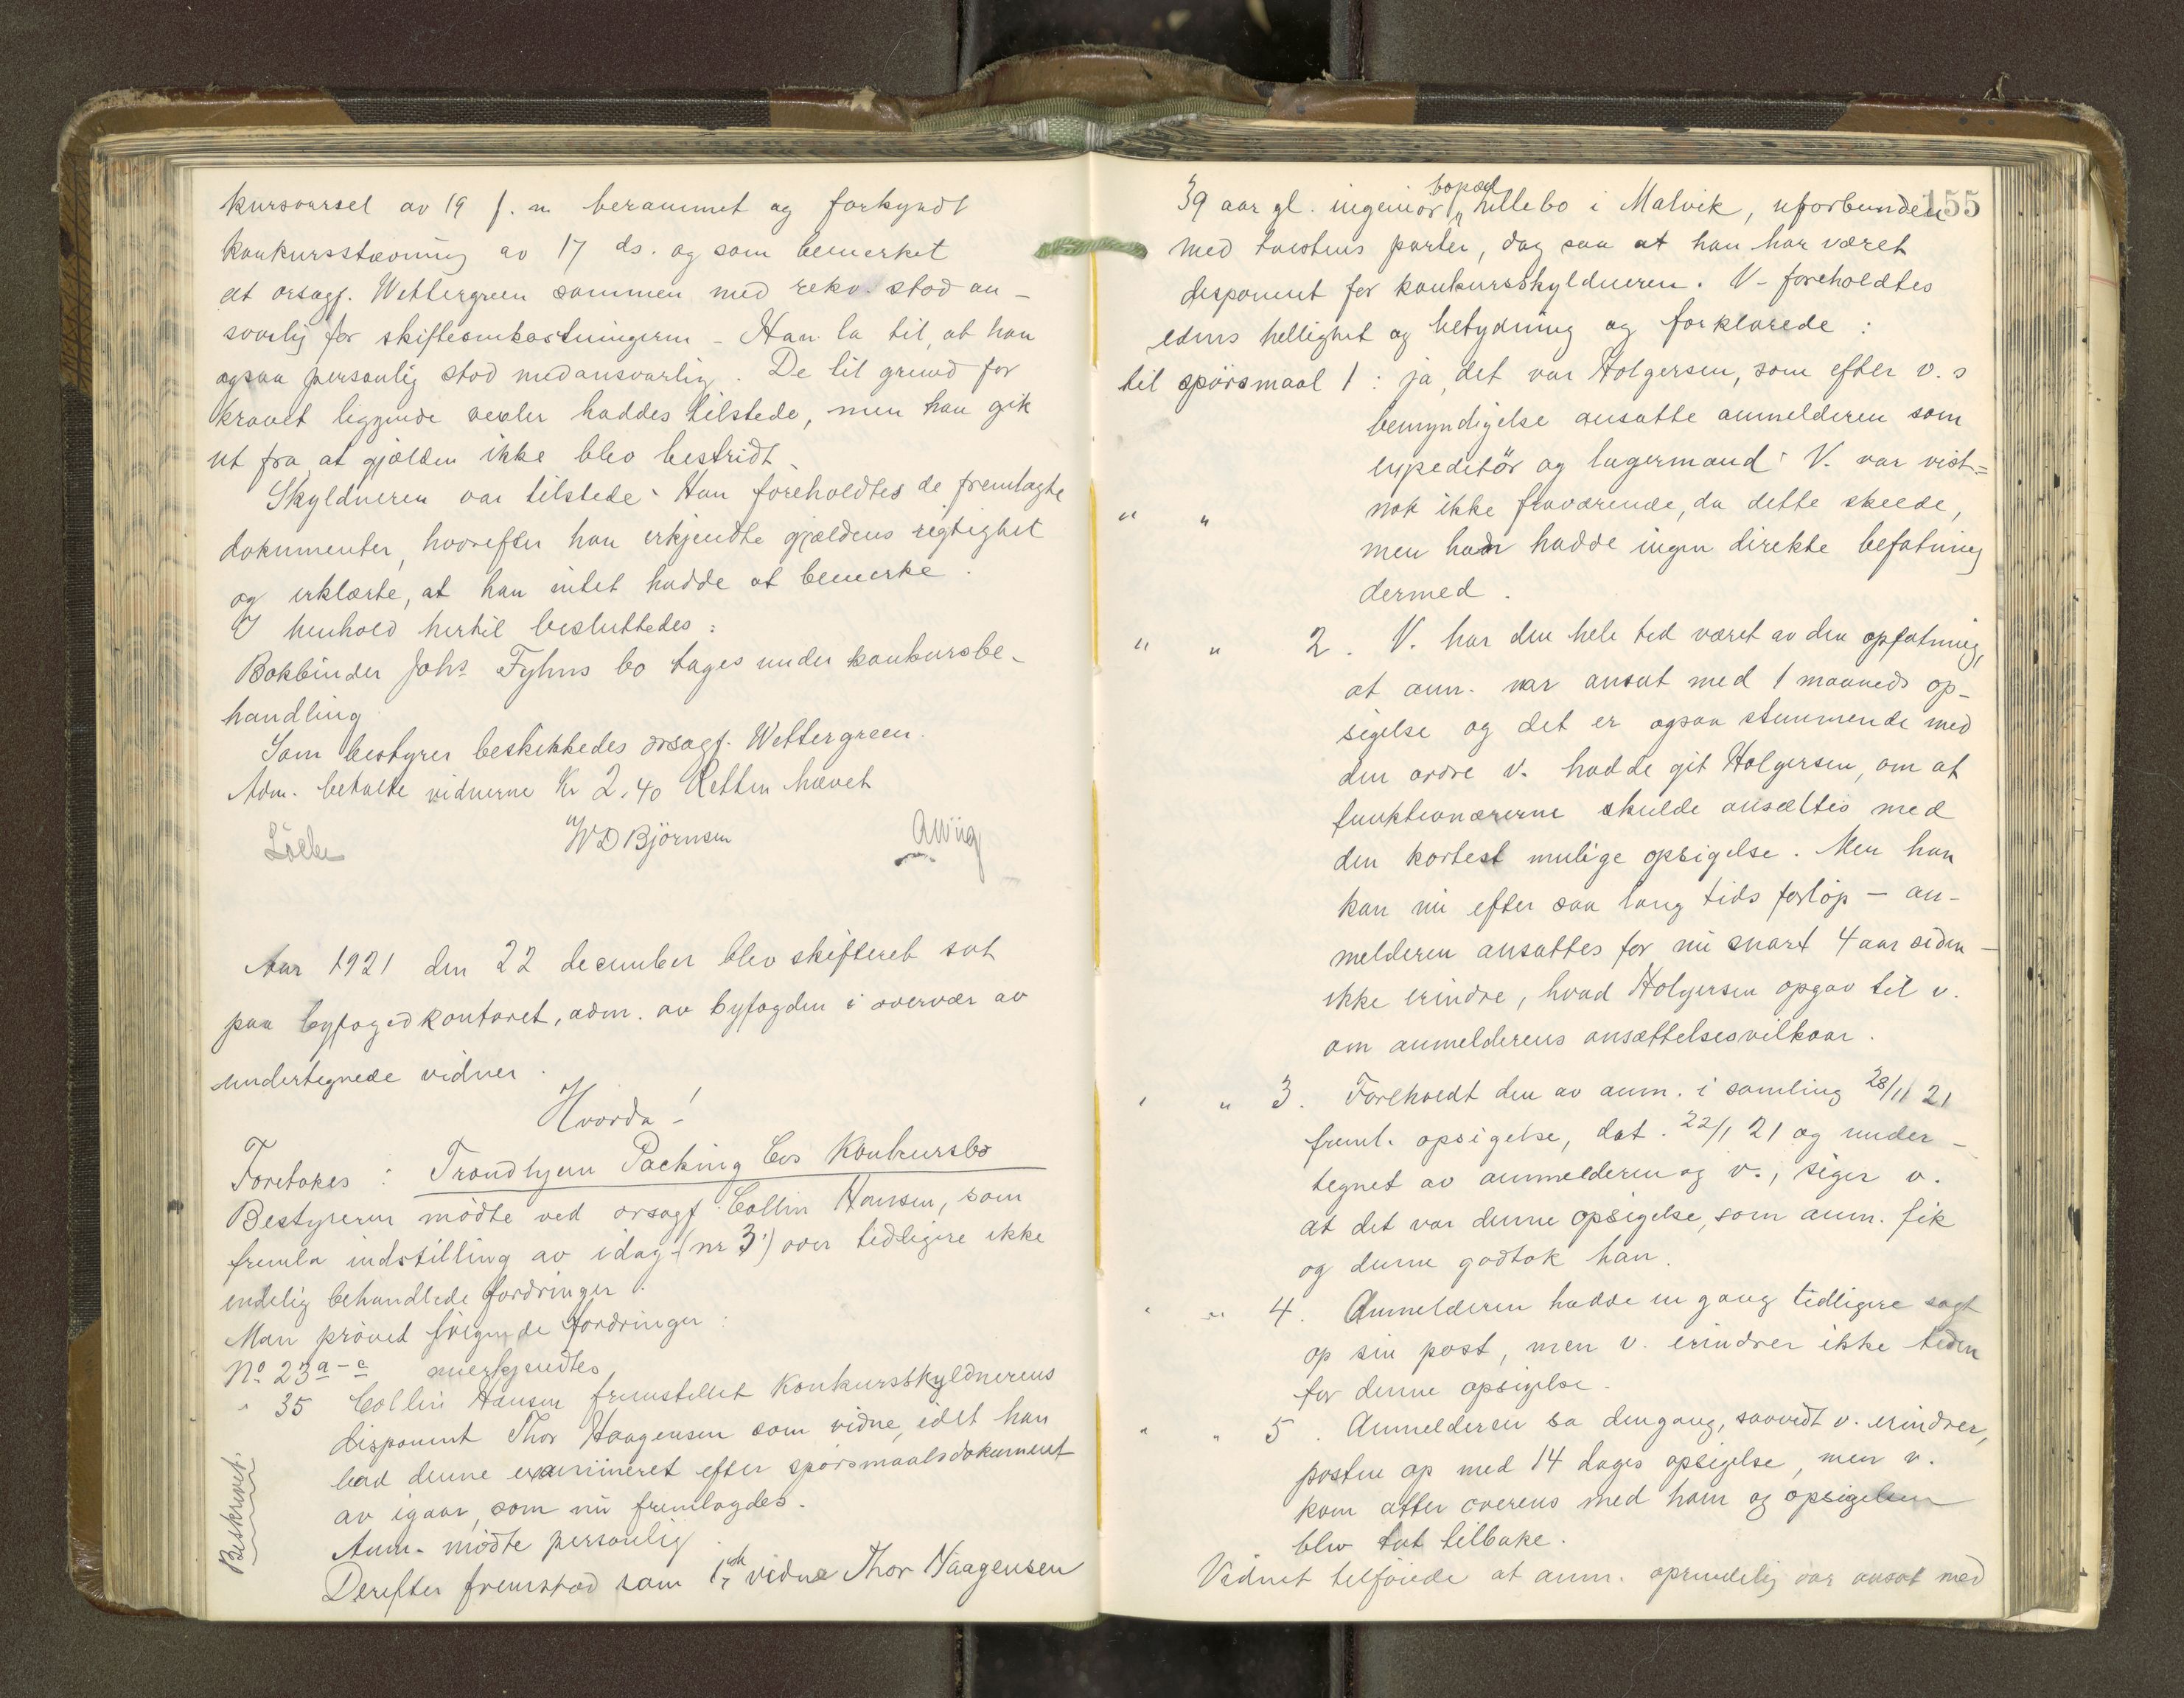 kursvarsel av 19 f. m. berammet og forkyndt
konkursstævning av 17 ds. og som bemerket
at orsagf. Wettergreen sammen med rekv. stod an-
svarlig for skifteomkostningerne - Han la til, at han
ogsaa personlig stod medansvarlig. De til grund for
kravet liggende vexler haddes tilstede, men han gik
ut fra at gjælden ikke blev bestridt.
Skyldneren var tilstede. Han foreholdtes de fremlagte
dokumenter, hvorefter han erkjendte gjældens rigtighet
og erklærte, at han intet hadde at bemerke.
I henhold hertil besluttedes:
Bokbinder Johs Fyhns bo tages under konkursbe-
handling
Som bestyrer beskikkedes orsagf. Wettergreen.
Adm. betalte vidnerne Kr 2.40 Retten hævet
WD Björnsen
Aar 1921 den 22 december blev skifteret sat
paa byfogedkontoret, adm. av byfogden i overvær av
undertegnede vidner.
Hvorda!
Foretokes: Trondhjem Packing Cos Konkursbo
Bestyreren mödte ved orsagf. Collin Hansen, som
fremla indstilling av idag (nr 3') over tidligere ikke
endelig behandlede fordringer.
Man prövet fölgende fordringer:
No. 23a-c anerkjendtes
" 35 Collin Hansen fremstillet Konkursskyldnerens
disponent Thor Haagensen som vidne, idet han
bad denne examineret efter spörsmaalsdokument
av igaar, som nu fremlagdes.
Anm. mödte personlig.
Beskrevet.
Derefter fremstod som 1ste vidne Thor Haagensen
155
bopæl
39 aar gl. ingeniör, hellebo i Malvik, uforbunden
med tvistens parter, dog saa at han har været
disponent for konkursskyldneren. V. foreholdtes
edens hellighet og betydning og forklarede:
til spörsmaal 1: ja, det var Holgersen, som efter v.s
bemyndigelse ansatte anmelderen som
expeditör og lagermand. V. var vist=
" " nok ikke fraværende, da dette skeede,
men han hadde ingen direkte befatning
dermed.
" " 2. V. har den hele tid været av den opfatning,
at anm. var ansat med 1 maaneds op-
sigelse og det er ogsaa stemmende med
den ordre v. hadde git Holgersen, om at
funktionærerne skulde ansættes med
den kortest mulige opsigelse. Men han
kan nu efter saa lang tids forlöp - an-
melderen ansattes for nu snart 4 aar siden -
ikke erindre, hvad Holgersen opgav til v.
om anmelderens ansættelsesvilkaar.
" " 3. Foreholdt den av anm. i samling 28/11 21
freml. opsigelse, dat. 22/1 21 og under-
tegnet av anmelderen og v., siger v.
at det var denne opsigelse, som anm. fik
og denne godtok han.
" " 4. Anmelderen hadde en gang tidligere sagt
op sin post, men v. erindrer ikke tiden
for denne opsigelse.
" " 5. Anmelderen sa dengang, saavidt v. erindrer,
posten op med 14 dages opsigelse, men v.
kom atter overens med ham og opsigelsen
blev tat tilbake.
Vidnet tilföiede at anm. oprindelig var ansat med